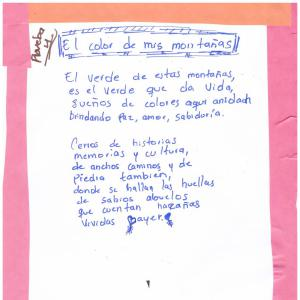 Prueba 4
El color de mis montañas
El verde de estas montañas,
es el verde que da vida,
sueños de colores aqui anidan
brindando paz, amor, sabiduría.
Cerros de historias
memorias y cultura,
de anchos caminos y de
piedra tambien,
donde se hallan las huellas
de sabios abuelos
que cuentan hazañas
vividas ayer.